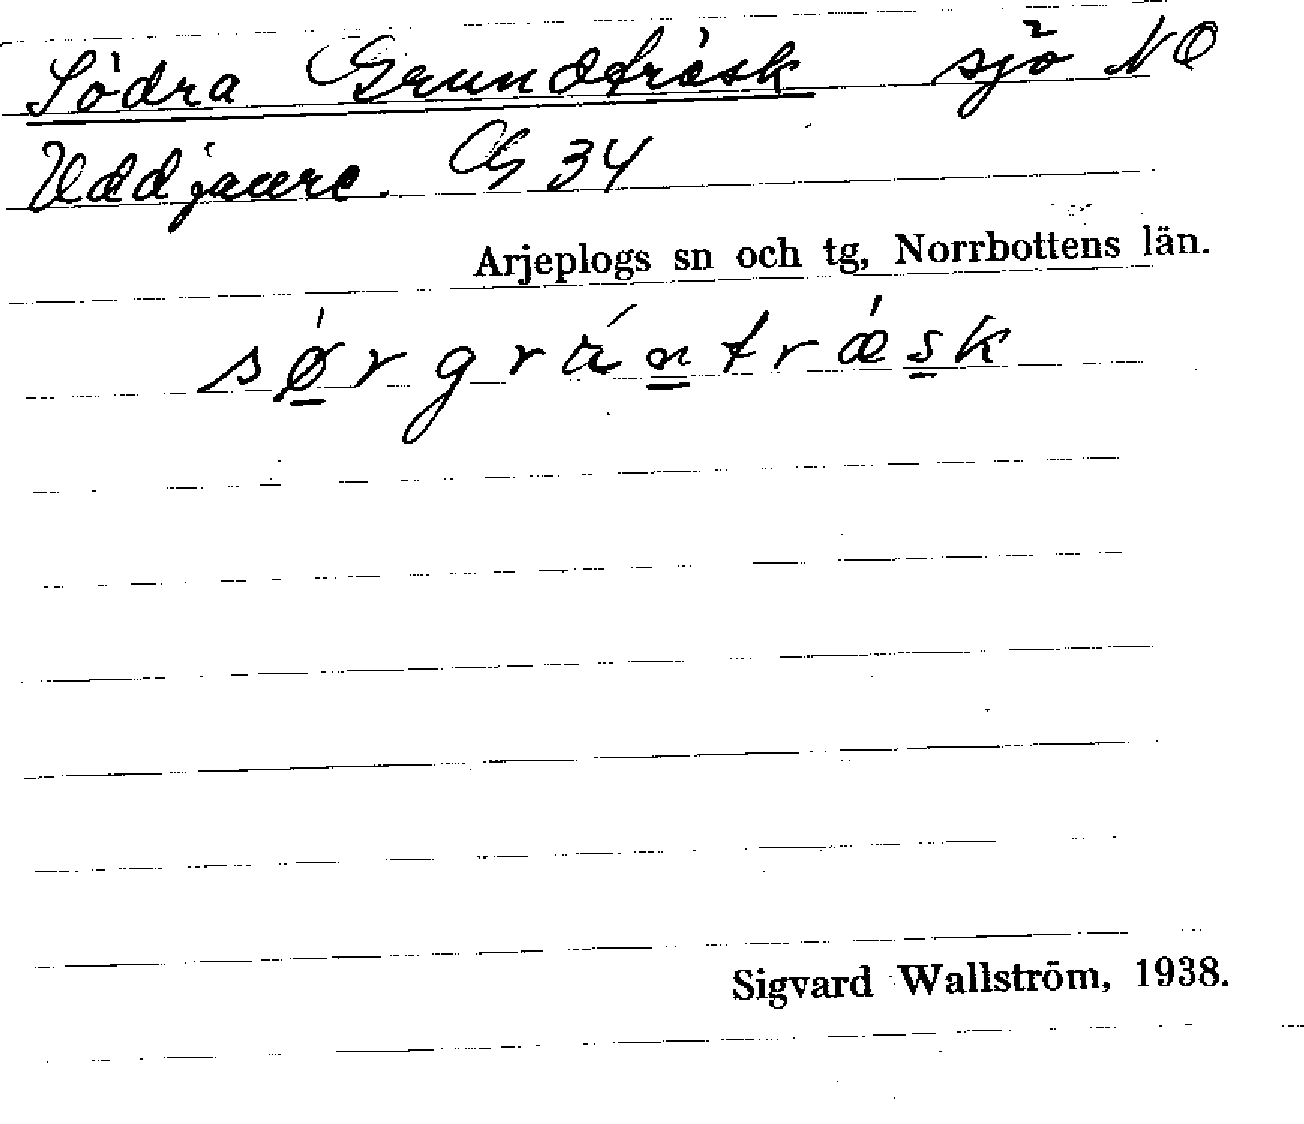 Södra Grundträsk sjö NO
Uddjaure. G 34
Arjeplogs sn och tg, Norrbottens län.
sǿrgrántrǽsk
Sigvard Wallström, 1938.